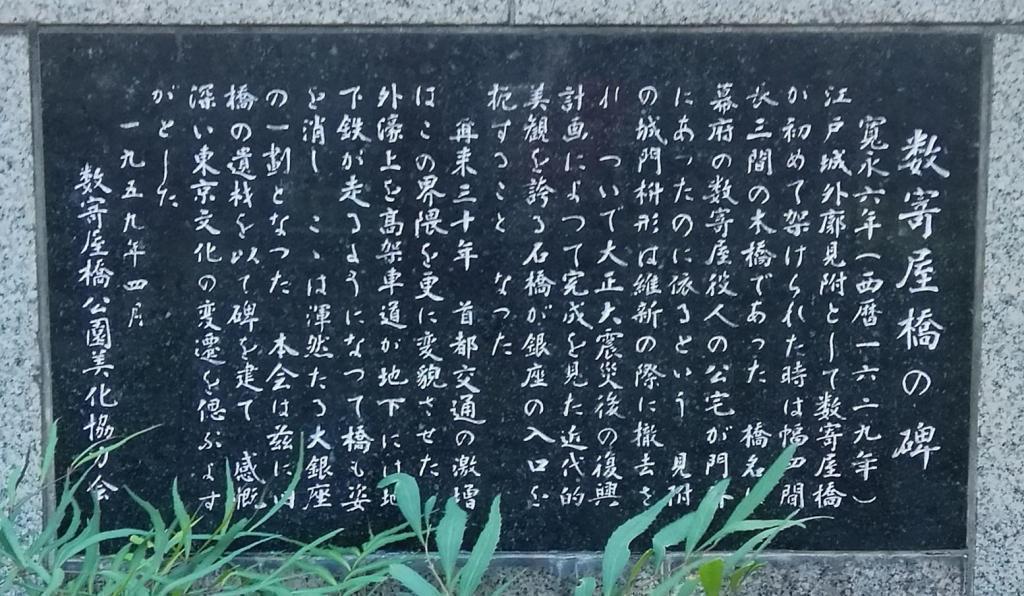 数寄屋橋の碑
寛永六年(西暦一六二九年)
江戸城外廓見附として数寄屋橋
が初めて架けられた時は幅四間
長三間の木橋であった 橋名は
幕府の数寄屋役人の公宅が門外
にあったのに依るという 見附
の城門枡形は維新の際に撤去さ
れ ついで大正大震災後の復興
計画によつて完成を見た近代的
美観を誇る石橋が銀座の入口を
扼すること なつた
再来三十年 首都交通の激増
はこの界隈を更に変貌させた
外濠上を高架車道が地下には地
下鉄が走るようになつて橋も姿
を消し こゝは渾然たる大銀座
の一劃となつた 本会は茲に旧
橋の遺材を以て碑を建て 感慨
深い東京文化の変遷を偲ぶよす
がとした
一九五九年四月
数寄屋橋公園美化協力会